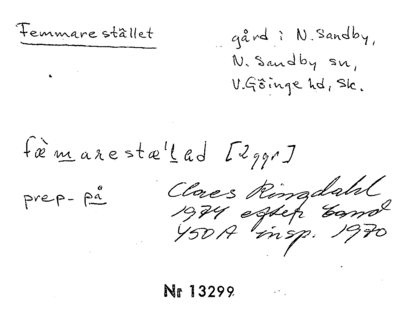 Femmarestället
gård i N. Sandby,
N. Sandby sn,
V. Göinge hd, Sk.
fæ̀marestæ'l̲ad [2 ggr]
prep. på
Claes Ringdahl
1974 efter band
450A insp. 1970
Nr 13299